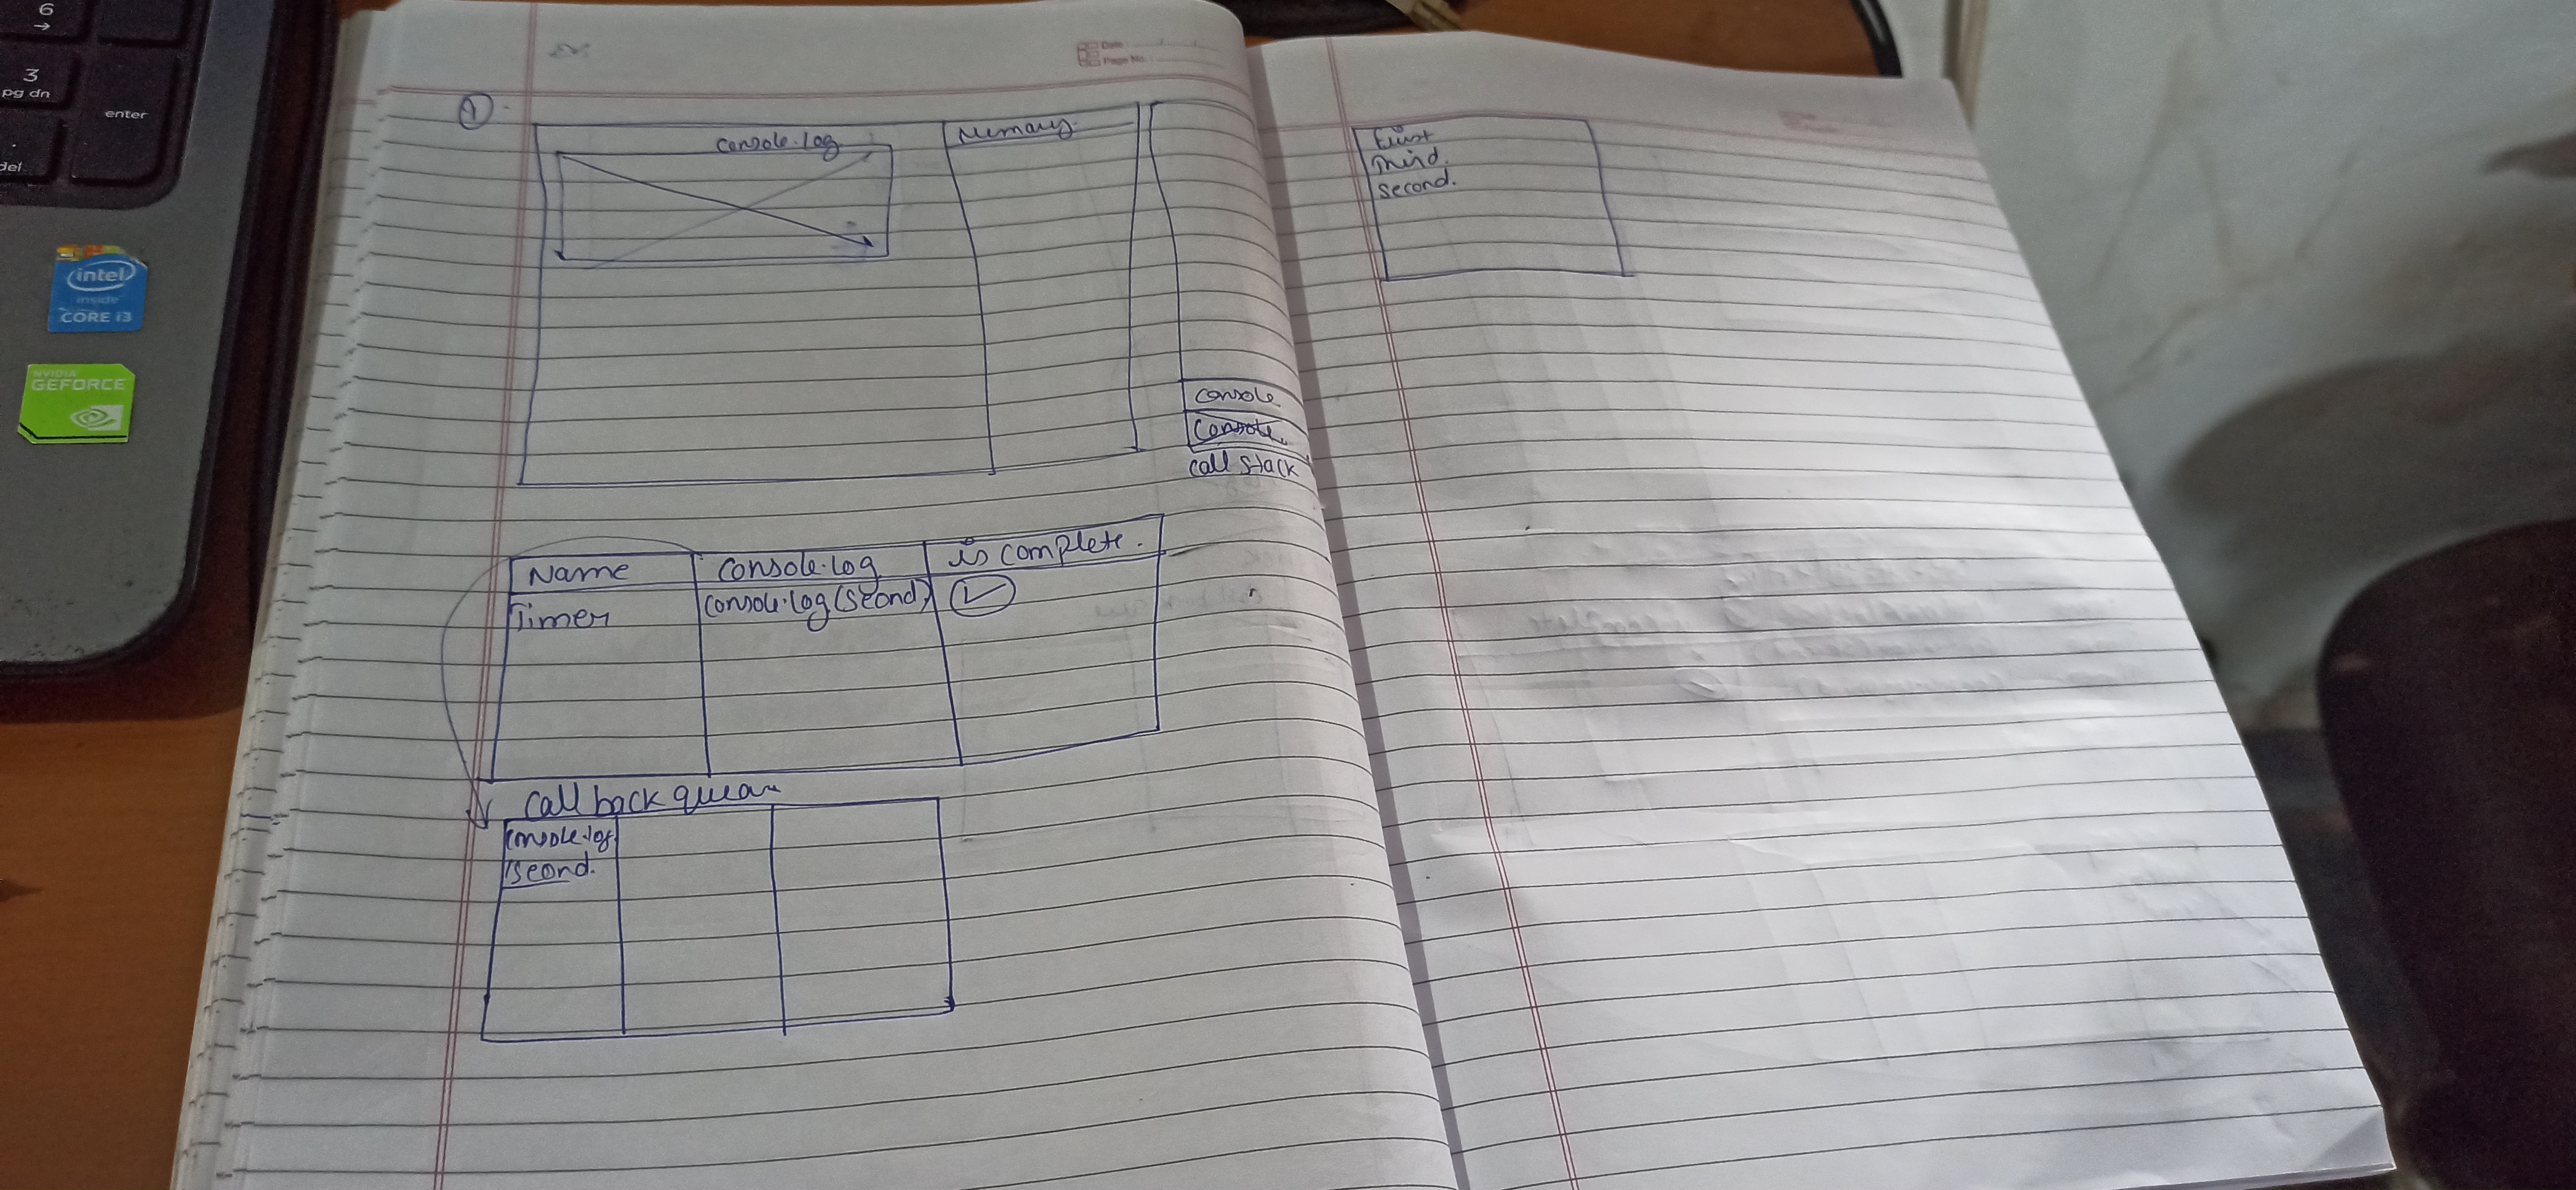 6
→
3
pg dn
enter
.
del
intel
inside
CORE i3
NVIDIA
GEFORCE
Date :
Page No :
1
console.log
Memory
First
Third.
Second.
console
Console
call stack
Name
Console.log
is complete.
Timer
Console.log(Seond)
Call back queau
Console.log
Seond.